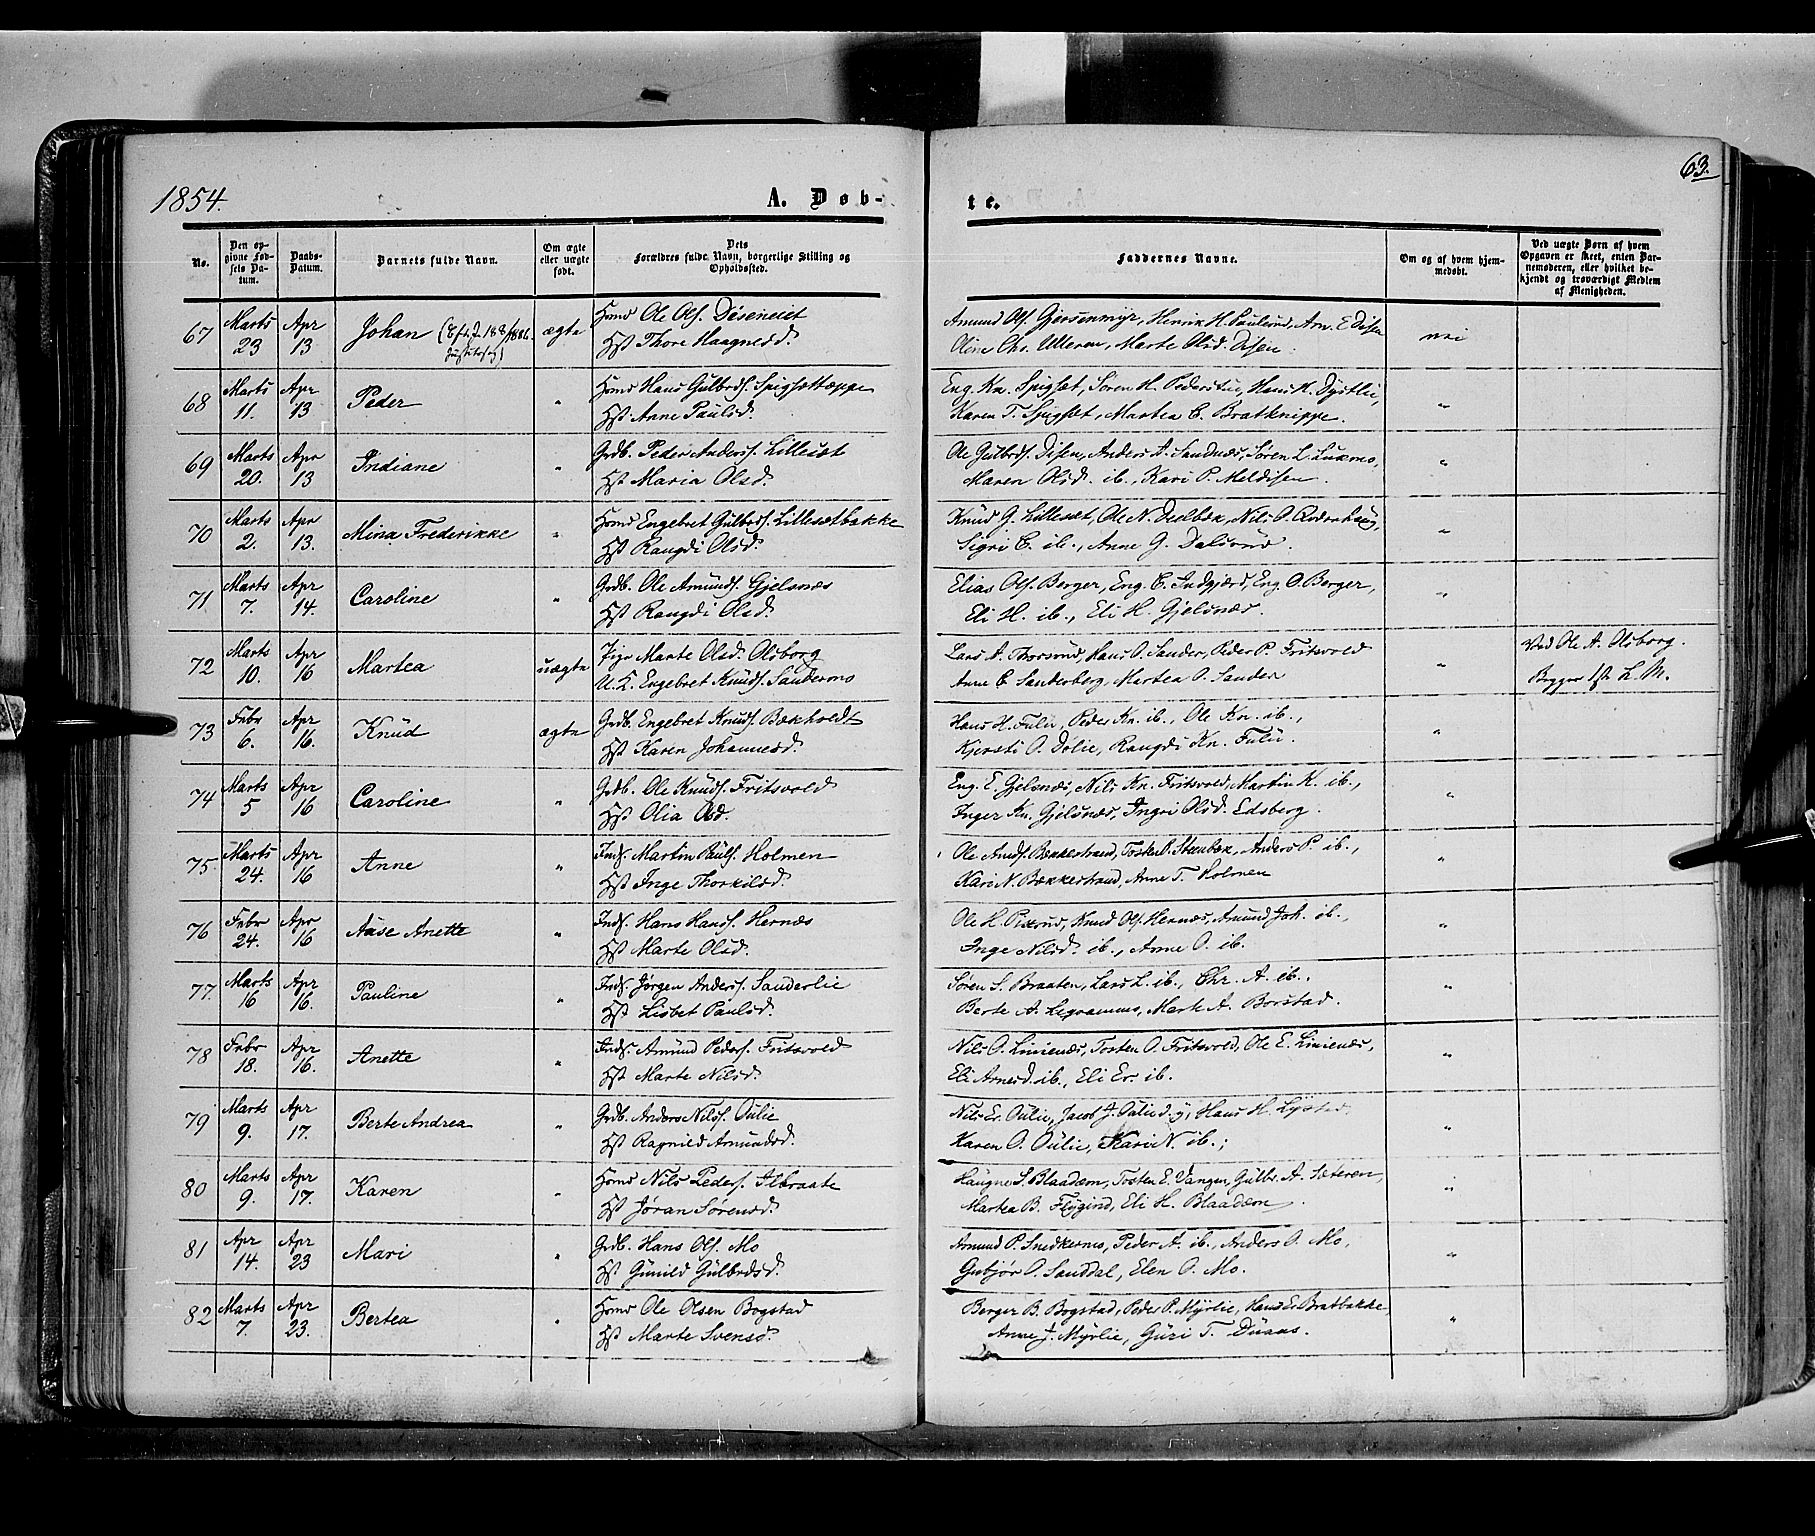 1854.
A. Døb-
te.
63.
No.
Den op-
givne Fød-
sels Da-
tum.
Daabs-
Datum.
Barnets fulde Navn.
Om ægte
eller uægte
født.
Dets
Forældres fulde Navn, borgerlige Stilling og
Opholdssted.
Faddernes Navne.
Om og af hvem hjem-
medøbt.
Ved uægte Børn af hvem
Opgaven er skeet, enten Bar-
nemoderen, eller hvilket be-
kjendt og troværdigt Medlem
af Menigheden.
67 Marts 23 Apr 13 Johan ægte
Hmd Ole Ols. Diseneiet
Hst Thore Haagnesd.
Amund Ols. Gjersenmyr, Henrik H. Paulsrud, Arn. E. Disen
Oline Chr. Ulleren, Marte Olsd. Disen.
nei
68 Marts 11. Apr 13 Peder "
Hmd Hans Gulbrds. Spigsettæppe
Hst Anne Paulsd.
Eng. Kn. Spigset, Søren H. Pederstu, Hans K. Dystlie,
Karen T. Spigset, Martea C. Bratknippe.
"
69 Marts 20. Apr 13 Indiane "
Grdb. Peder Anders. Lilleset
Hst Maria Olsd.
Ole Gulbrds. Disen, Anders A. Sandnæs, Søren L. Luxmo,
Maren Olsd. ib., Kari P. Meldisen.
"
70 Marts 2. Apr 13. Mina Frederikke "
Hmd Engebret Gulbrds. Lillesætbakke
Hst Rangdi Olsd.
Knud G. Lillesæt, Ole N. Deelbek, Nils O.
Sigri E. ib., Anne G. Dalsrud.
"
71 Marts 7. Apr 14. Caroline "
Grdb. Ole Amunds. Gjelsnæs
Hst Rangdi Olsd.
Elias Ols. Berger, Eng. C. Indgjærd, Eng. O. Berger,
Eli H. ib., Eli H. Gjelsnæs.
"
72 Marts 10. Apr 16 Martea uægte
Pige Marte Olsd. Olsborg
U. K. Engebret Knuds. Sandermo
Lars A. Thorsrud, Hans O. Sander, Peder P. Fritsvold
Anne E. Sanderberg, Martea O. Sander
"
Ved Ole A. Olsborg.
Begges 1st L. M.
73 Febr 6. Apr 16. Knud ægte
Grdb. Engebret Knuds. Bækholdt
Hst Karen Johannesd.
Hans H. Fulu, Peder Kn. ib., Ole Kn. ib.,
Kjersti O. Dolie, Rangdi Kn. Fulu.
"
74 Marts 5 Apr 16 Caroline "
Grdb. Ole Knuds. Fritsvold
Hst Olia Olsd.
Eng. E. Gjelsnæs, Nils Kn. Fritsvold, Martin K. ib.,
Inger Kn. Gjelsnæs, Ingri Olsd. Edsberg.
"
75. Marts 24. Apr 16 Anne "
Inds. Martin Pauls. Holmen
Hst Inge Thorkilsd.
Ole Amds. Bækkestrand, Tosten P. Steenbek, Anders P. ib.,
Kari N. Bækkestrand, Anne T. Holmen
"
76 Febr 24. Apr 16 Aase Anette "
Inds. Hans Hans. Hernæs
Hst Marte Olsd.
Ole H. Pixrud, Knud Ols. Hernæs, Amund Joh. ib.,
Inge Nilsd. ib., Anne O. ib.
"
77. Marts 16 Apr 16. Pauline "
Inds. Jørgen Anders. Sanderlie
Hst Lisbet Paulsd.
Søren S. Braaten, Lars L. ib., Chr. A. ib.,
Berte A. Legrammo, Marte A. Borstad.
"
78 Febr 18. Apr 16. Anette "
Inds. Amund Peders. Fritsvold
Hst Marte Nilsd.
Nils O. Linienæs, Tosten O. Fritsvold, Ole E. Linienæs,
Eli Arnesd. ib., Eli Er. ib.
"
79 Marts 9. Apr 17. Berte Andrea "
Grdb. Anders Nils. Oulie
Hst Ragnild Amundsd.
Nils Er. Oulie, Jacob J. Oulie d.y., Hans H. Lystad
Karen O. Oulie, Kari N. ib.;
"
80 Marts 9. Apr 17. Karen "
Hmd Nils Peders. Ilbraate
Hst Jøran Sørensd.
Haagne S. Blaadem, Tosten E. Vangen, Gulbr. A. Sæteren,
Martea B. Flygind, Eli H. Blaadem
"
81 Apr 14. Apr 23 Mari "
Grdb. Hans Ols. Mo
Hst Gunild Gulbrdsd.
Amund P. Snedkermo, Peder A. ib., Anders O. Mo,
Gubjør O. Sanddal, Elen O. Mo.
"
82 Marts 7. Apr 23. Bertea "
Hmd Ole Olsen Bogstad
Hst Marte Svensd.
Berger B. Bogstad, Peder P. Myrlie, Hans Er. Bratbakke
Anne J. Myrlie, Guri T. Duaas.
"